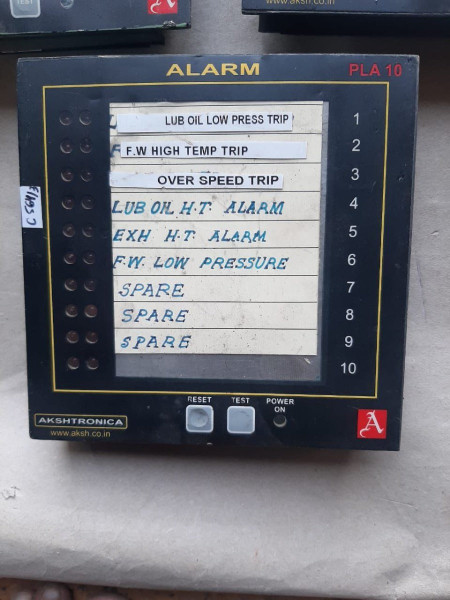 TEST
www.aksh.co.in
ALARM
PLA 10
LUB OIL LOW PRESS TRIP 1
F.W HIGH TEMP TRIP 2
OVER SPEED TRIP 3
LUB OIL H.T. ALARM 4
EXH H.T. ALARM 5
F.W. LOW PRESSURE 6
SPARE 7
SPARE 8
SPARE 9
10
RESET TEST POWER ON
AKSHTRONICA
www.aksh.co.in
A